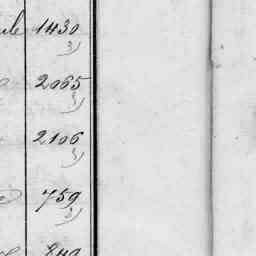 1430
3)
2065
3)
2106
3)
759
3)
849